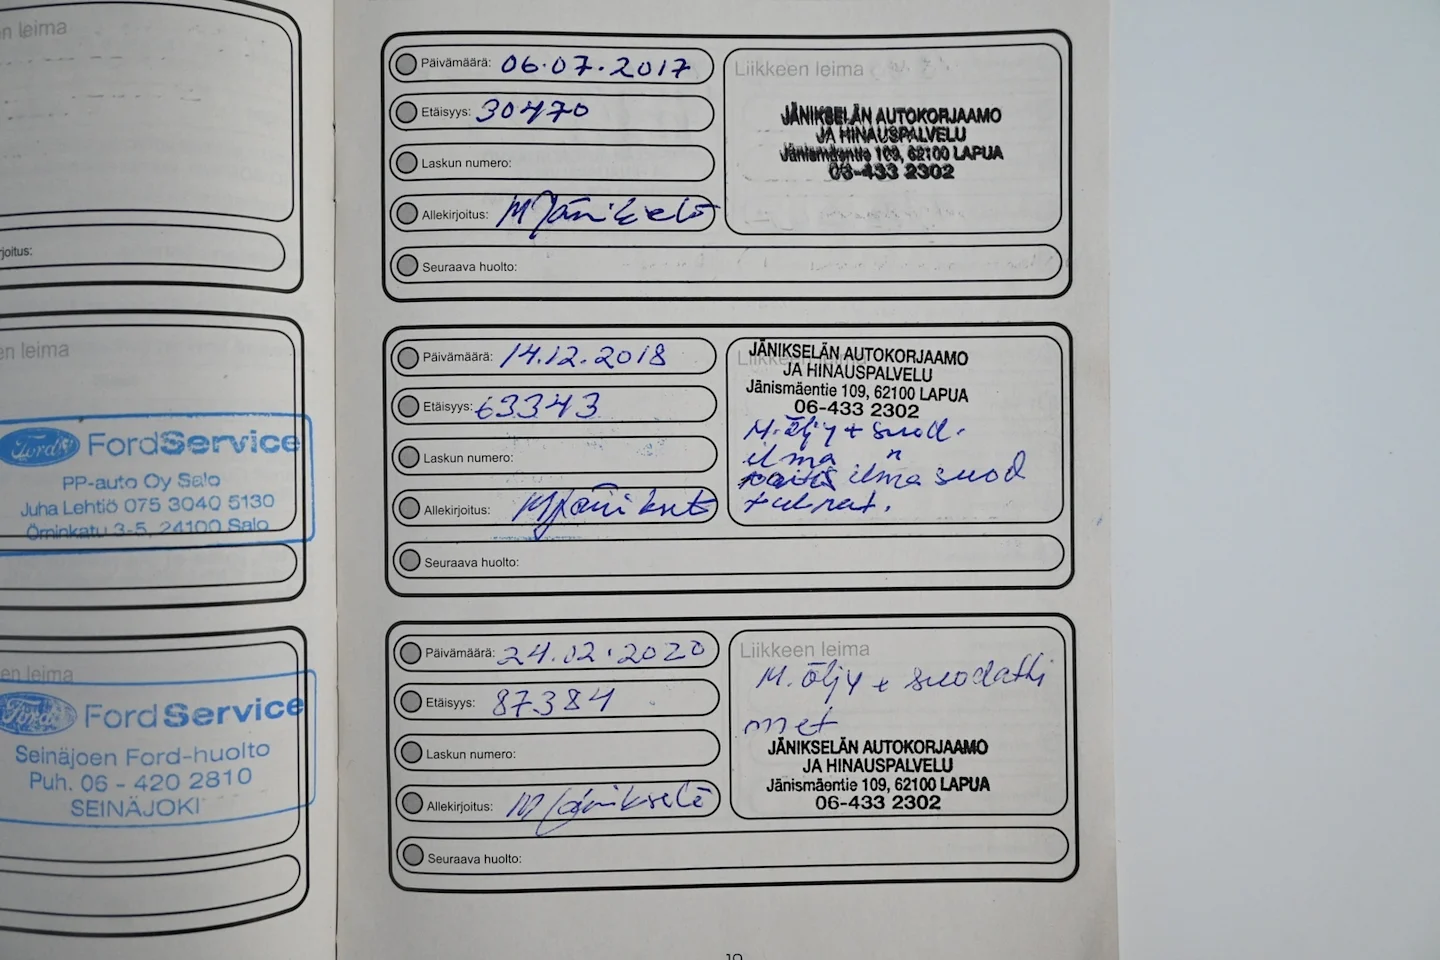 en leima
rjoitus:
en leima
Ford FordService
PP-auto Oy Salo
Juha Lehtiö 075 3040 5130
Örninkatu 3-5, 24100 Salo
en leima
Ford FordService
Seinäjoen Ford-huolto
Puh. 06 - 420 2810
SEINÄJOKI
Päivämäärä: 06.07.2017
Etäisyys: 30470
Laskun numero:
Allekirjoitus: M Jänikselä
Seuraava huolto:
Liikkeen leima
JÄNIKSELÄN AUTOKORJAAMO
JA HINAUSPALVELU
Jänismäentie 109, 62100 LAPUA
06-433 2302
Päivämäärä: 14.12.2018
Etäisyys: 63343
Laskun numero:
Allekirjoitus:
Seuraava huolto:
Liikkeen leima
JÄNIKSELÄN AUTOKORJAAMO
JA HINAUSPALVELU
Jänismäentie 109, 62100 LAPUA
06-433 2302
M.öljy + suod.
ilma "
ilma suod
Päivämäärä: 24.02.2020
Etäisyys: 87384
Laskun numero:
Allekirjoitus: M Jänikselä
Seuraava huolto:
Liikkeen leima
M.öljy + suodatti
met
JÄNIKSELÄN AUTOKORJAAMO
JA HINAUSPALVELU
Jänismäentie 109, 62100 LAPUA
06-433 2302